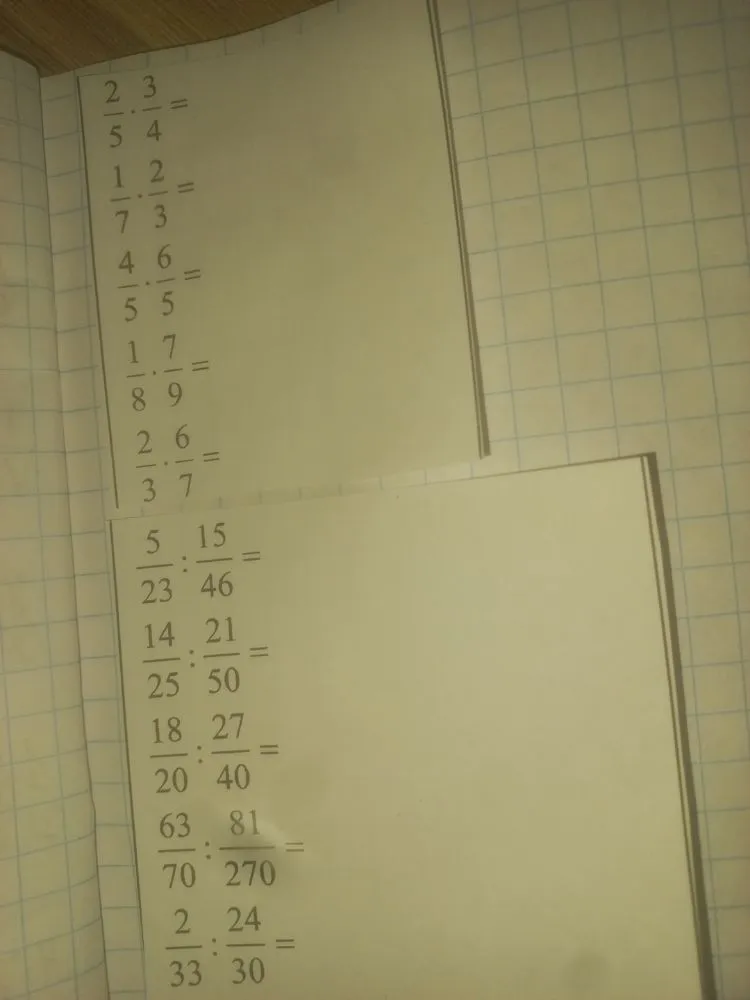 2/5 · 3/4 =
1/7 · 2/3 =
4/5 · 6/5 =
1/8 · 7/9 =
2/3 · 6/7 =
5/23 : 15/46 =
14/25 : 21/50 =
18/20 : 27/40 =
63/70 : 81/270 =
2/33 : 24/30 =